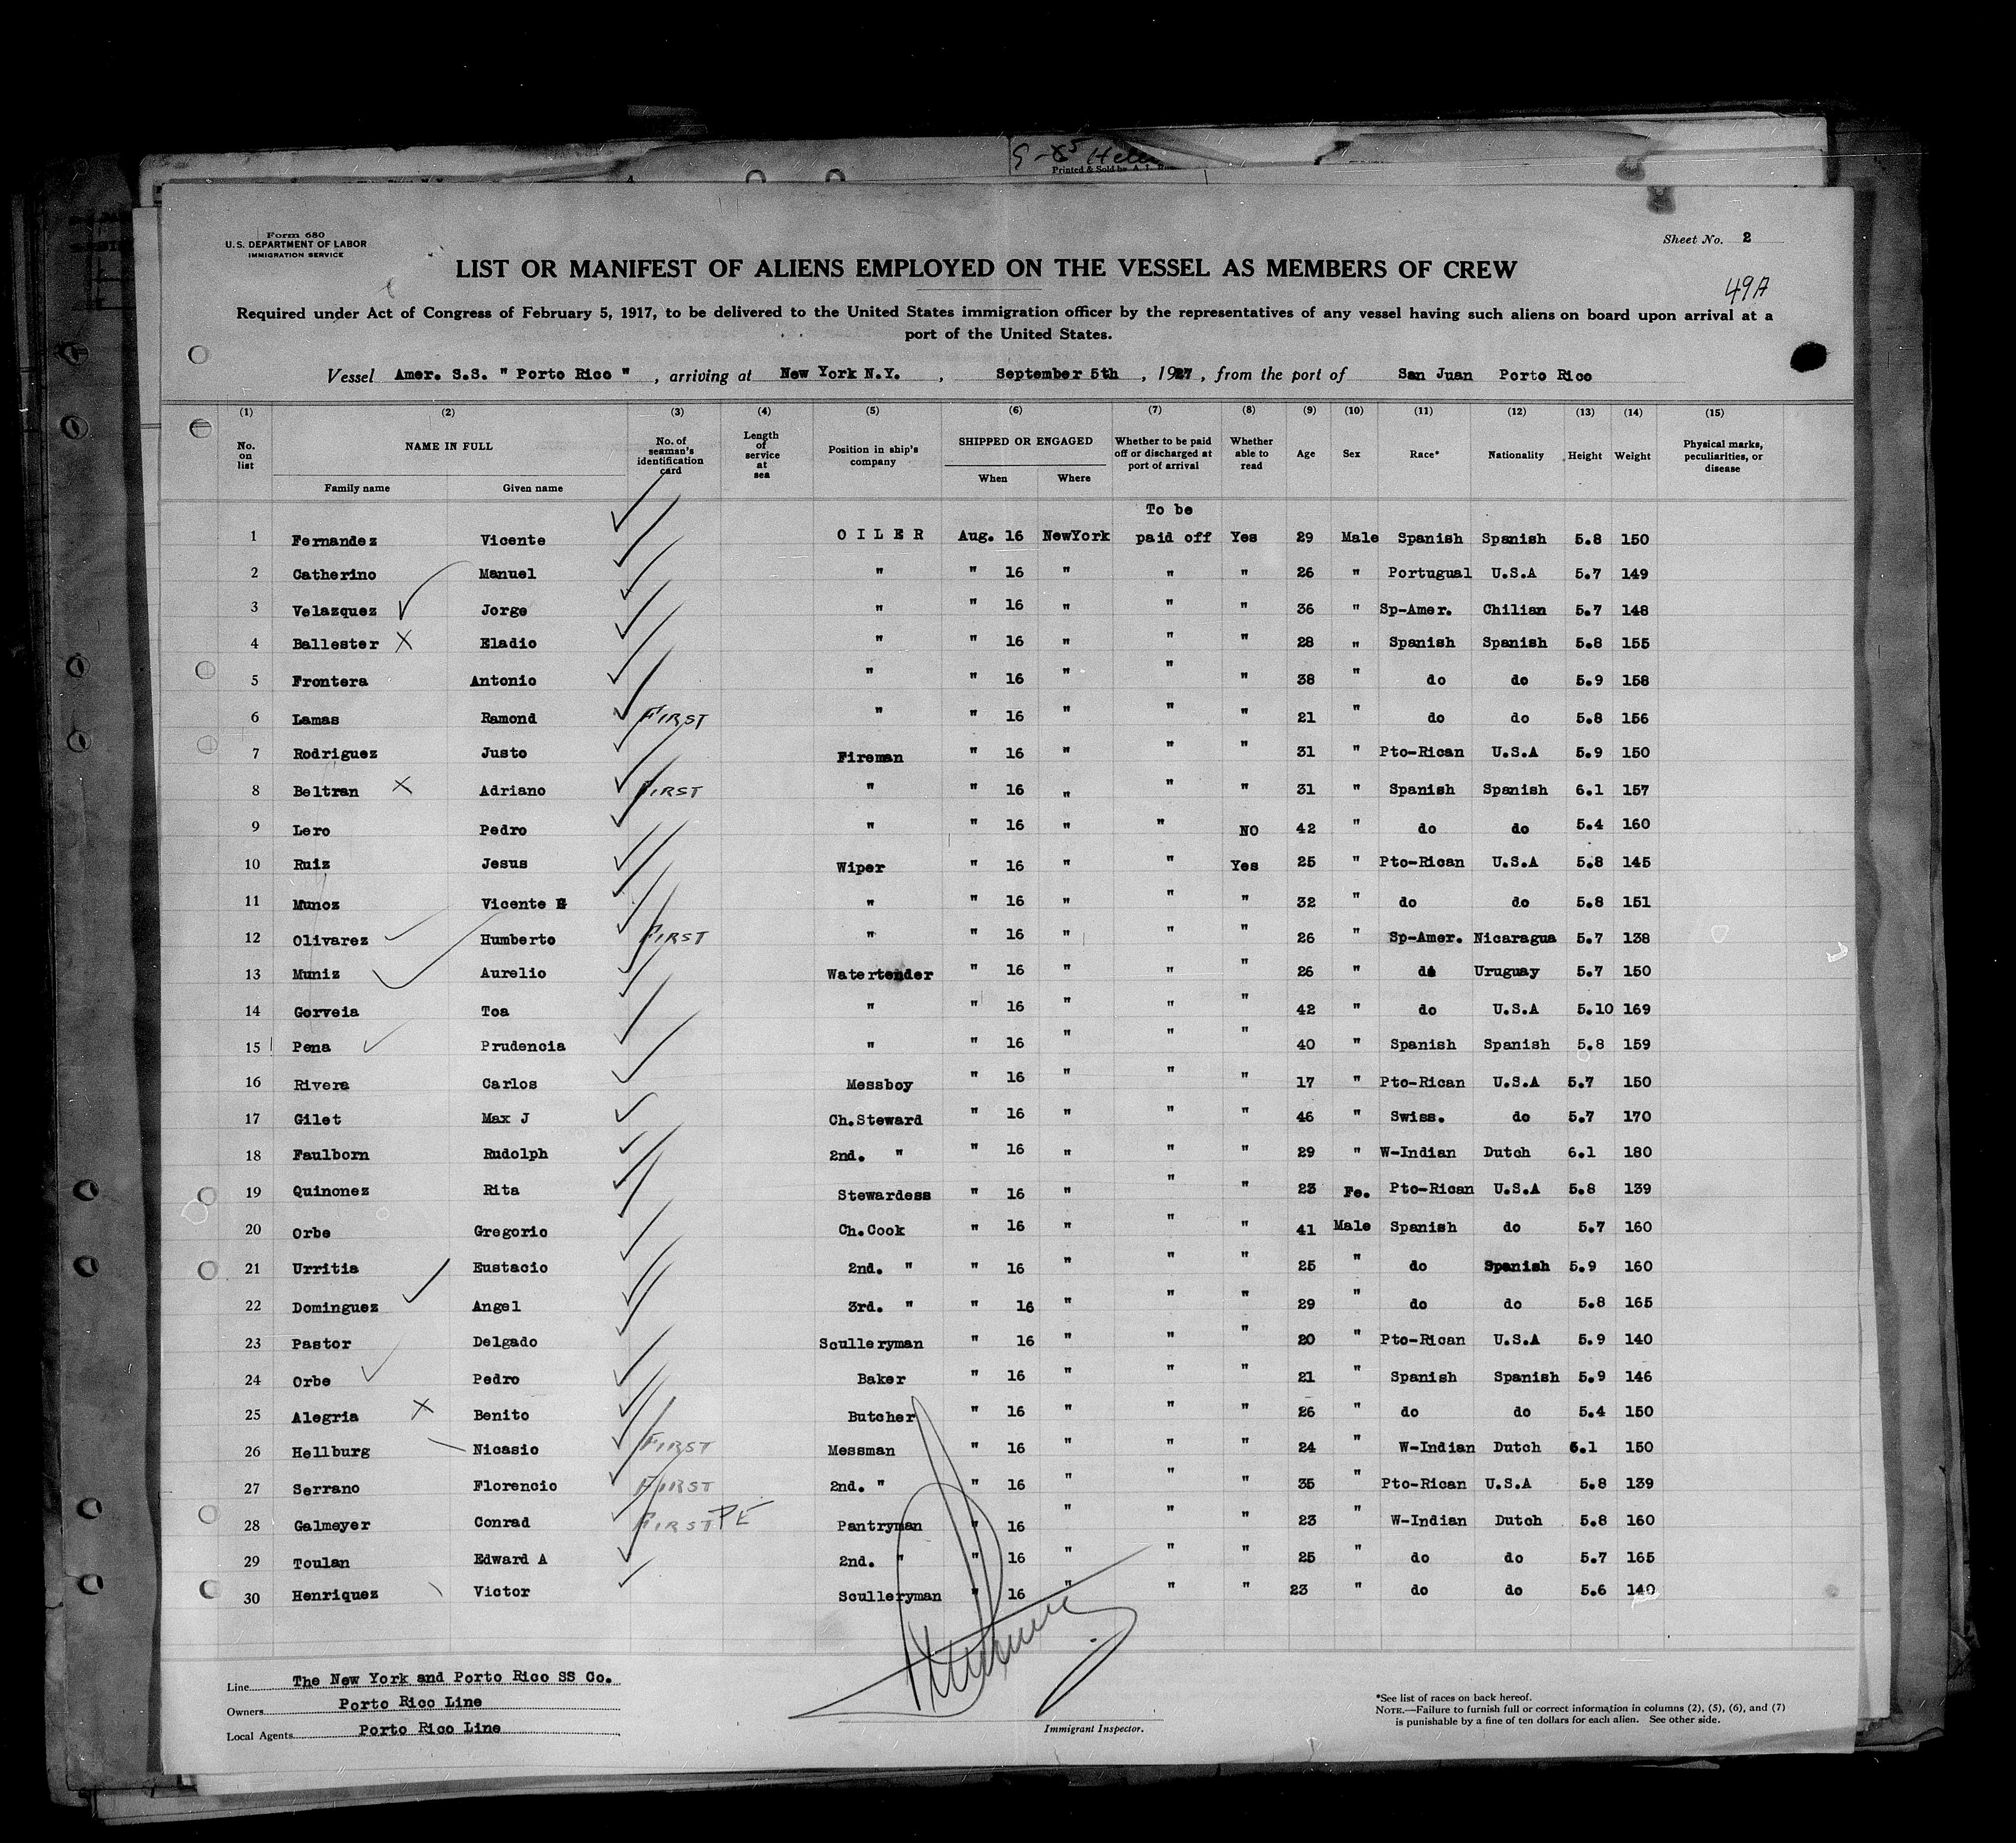 9-25 Hele
Printed & Sold by A. L.
Form 680
U.S. DEPARTMENT OF LABOR
IMMIGRATION SERVICE
Sheet No. 2
LIST OR MANIFEST OF ALIENS EMPLOYED ON THE VESSEL AS MEMBERS OF CREW
49A
Required under Act of Congress of February 5, 1917, to be delivered to the United States immigration officer by the representatives of any vessel having such aliens on board upon arrival at a
port of the United States.
Vessel Amer. S.S. " Porto Rico " , arriving at New York N.Y. , September 5th , 1927 , from the port of San Juan Porto Rico
(1) (2) (3) (4) (5) (6) (7) (8) (9) (10) (11) (12) (13) (14) (15)
No. on list NAME IN FULL Family name Given name No. of seaman's identification card Length of service at sea Position in ship's company SHIPPED OR ENGAGED When Where Whether to be paid off or discharged at port of arrival Whether able to read Age Sex Race* Nationality Height Weight Physical marks, peculiarities, or disease
To be
1 Fernandez Vicente OILER Aug. 16 NewYork paid off Yes 29 Male Spanish Spanish 5.8 150
2 Catherino Manuel " " 16 " " " 26 " Portugual U.S.A 5.7 149
3 Velazquez Jorge " " 16 " " " 36 " Sp-Amer. Chilian 5.7 148
4 Ballester X Eladio " " 16 " " " 28 " Spanish Spanish 5.8 155
5 Frontera Antonio " " 16 " " " 38 " do do 5.9 158
6 Lamas Ramond FIRST " " 16 " " " 21 " do do 5.8 156
7 Rodriguez Justo Fireman " 16 " " " 31 " Pto-Rican U.S.A 5.9 150
8 Beltran X Adriano FIRST " " 16 " " " 31 " Spanish Spanish 6.1 157
9 Lero Pedro " " 16 " " NO 42 " do do 5.4 160
10 Ruiz Jesus Wiper " 16 " " Yes 25 " Pto-Rican U.S.A 5.8 145
11 Munoz Vicente " " 16 " " " 32 " do do 5.8 151
12 Olivarez Humberto FIRST " " 16 " " " 26 " Sp-Amer. Nicaragua 5.7 138
13 Muniz Aurelio Watertender " 16 " " " 26 " do Uruguay 5.7 150
14 Gorveia Toa " " 16 " " " 42 " do U.S.A 5.10 169
15 Pena Prudencia " " 16 " " " 40 " Spanish Spanish 5.8 159
16 Rivera Carlos Messboy " 16 " " " 17 " Pto-Rican U.S.A 5.7 150
17 Gilet Max J Ch.Steward " 16 " " " 46 " Swiss. do 5.7 170
18 Faulborn Rudolph 2nd. " " 16 " " " 29 " W-Indian Dutch 6.1 180
19 Quinonez Rita Stewardess " 16 " " " 23 Fe. Pto-Rican U.S.A 5.8 139
20 Orbe Gregorio Ch.Cook " 16 " " " 41 Male Spanish do 5.7 160
21 Urritia Eustacio 2nd. " " 16 " " " 25 " do Spanish 5.9 160
22 Dominguez Angel 3rd. " " 16 " " " 29 " do do 5.8 165
23 Pastor Delgado Sculleryman " 16 " " " 20 " Pto-Rican U.S.A 5.9 140
24 Orbe Pedro Baker " 16 " " " 21 " Spanish Spanish 5.9 146
25 Alegria X Benito Butcher " 16 " " " 26 " do do 5.4 150
26 Hellburg Nicasio FIRST Messman " 16 " " " 24 " W-Indian Dutch 6.1 150
27 Serrano Florencio FIRST 2nd. " " 16 " " " 35 " Pto-Rican U.S.A 5.8 139
28 Galmeyer Conrad FIRST PE Pantryman " 16 " " " 23 " W-Indian Dutch 5.8 160
29 Toulan Edward A 2nd. " " 16 " " " 25 " do do 5.7 165
30 Henriquez Victor Sculleryman " 16 " " " 23 " do do 5.6 140
Line The New York and Porto Rico SS Co.
Owners Porto Rico Line
Local Agents Porto Rico Line
Immigrant Inspector.
*See list of races on back hereof.
NOTE.—Failure to furnish full or correct information in columns (2), (5), (6), and (7)
is punishable by a fine of ten dollars for each alien. See other side.